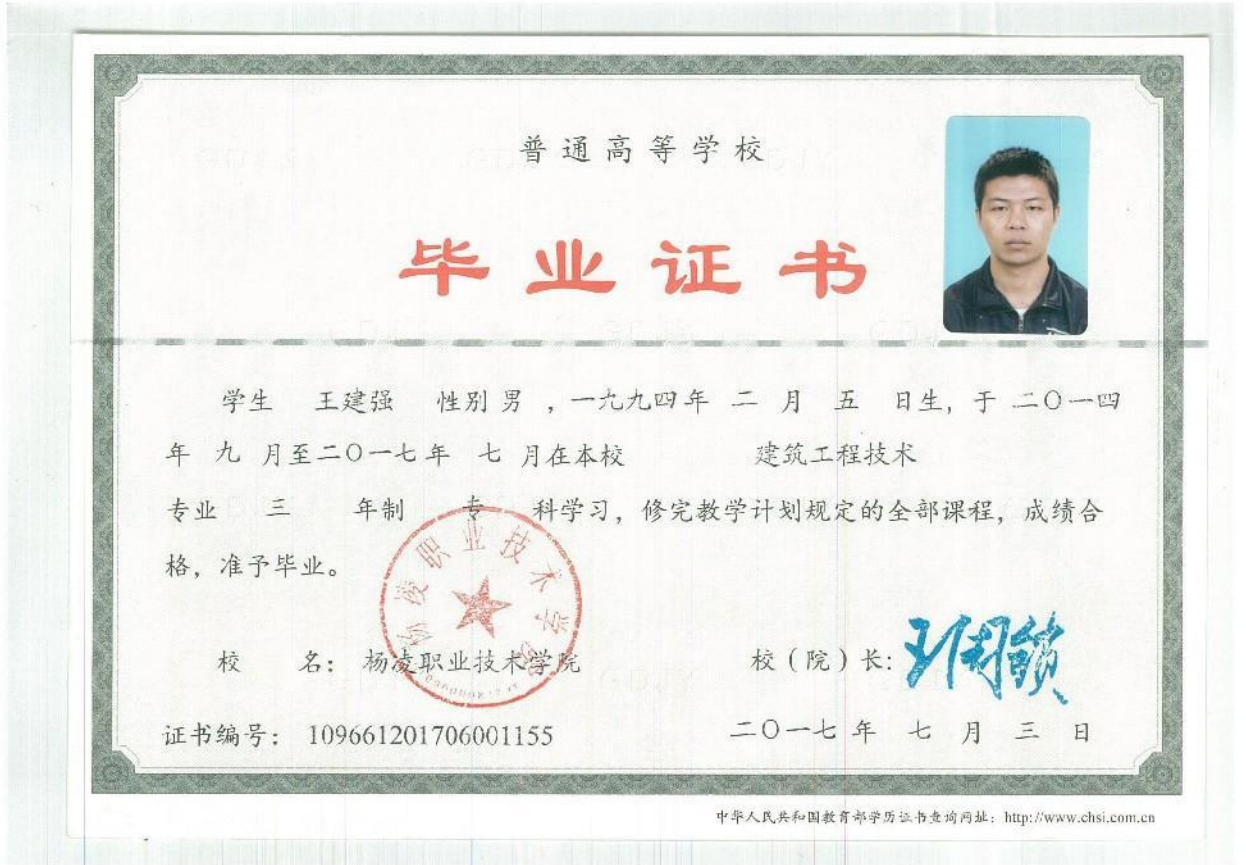 普通高等学校
毕业证书
学生 王建强 性别 男 ,一九九四年 二 月 五 日生, 于 二〇一四
年 九 月至二〇一七年 七 月在本校 建筑工程技术
专业 三 年制 专 科学习, 修完教学计划规定的全部课程, 成绩合
格, 准予毕业。
杨凌职业技术学院
校 名: 杨凌职业技术学院 校(院)长:
证书编号: 109661201706001155 二〇一七年 七 月 三 日
中华人民共和国教育部学历证书查询网址: http://www.chsi.com.cn